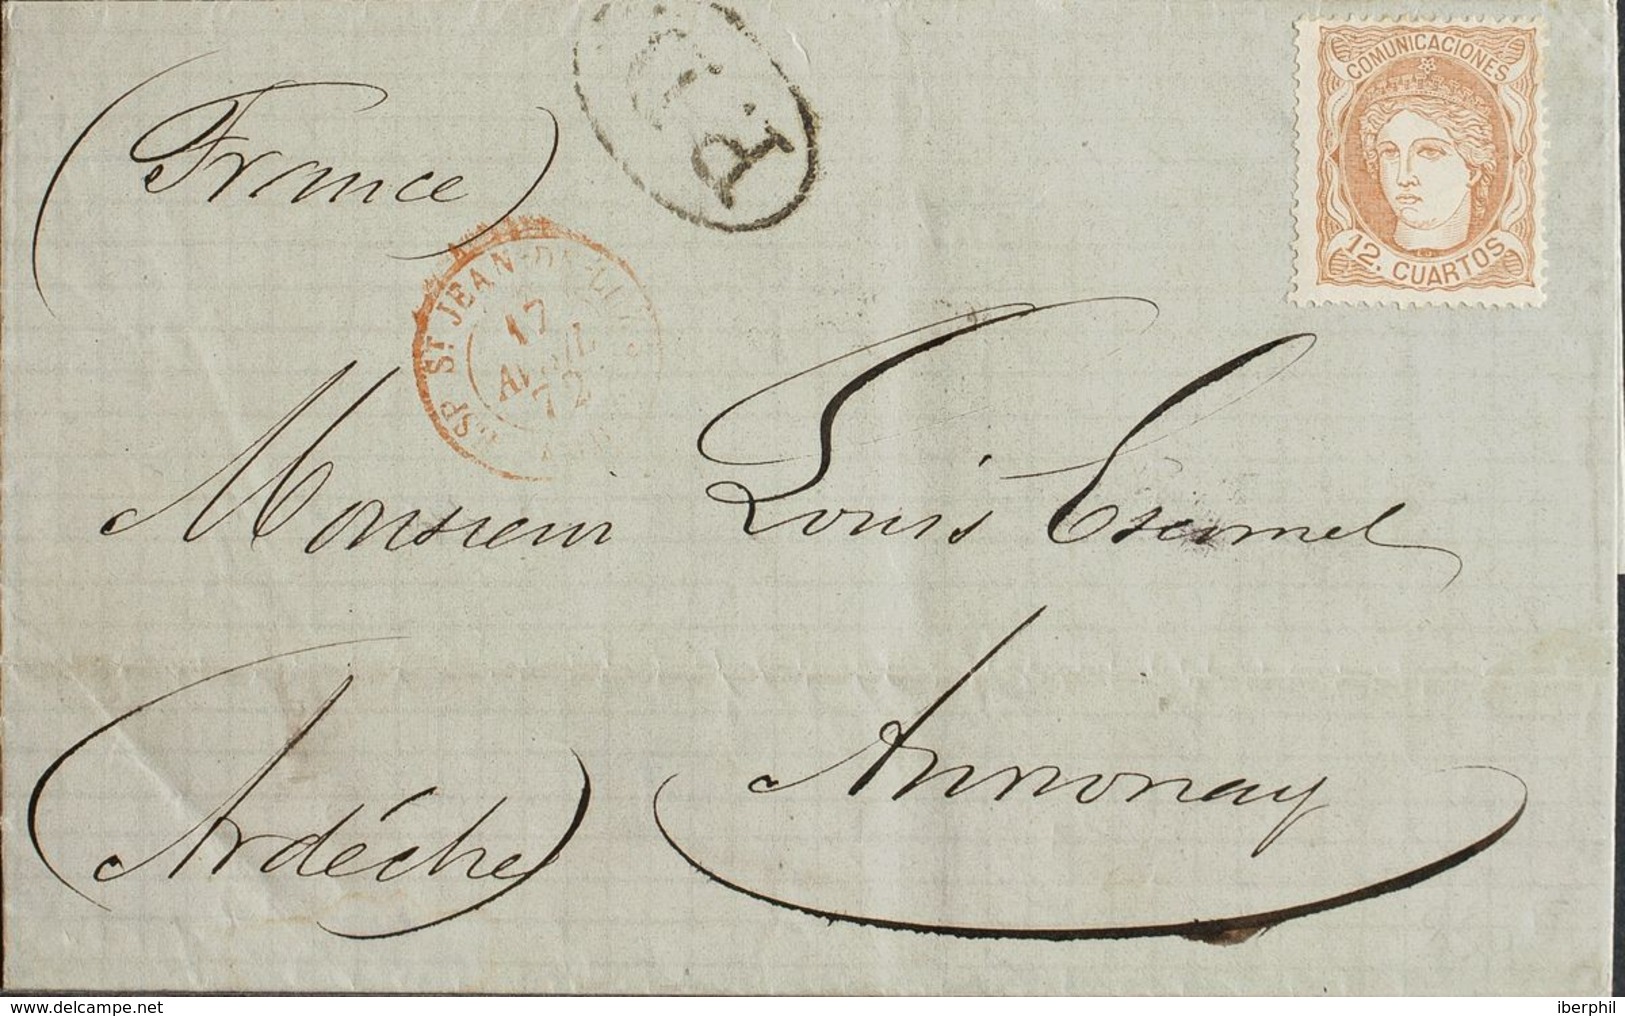 COMUNICACIONES
12. CUARTOS
(France)
P.D.
ESP. ST JEAN-DE-LUZ
17
AVRIL
72
Monsieur Louis Escomel
Annonay
(Ardèche)
delcampe.net
iberphil